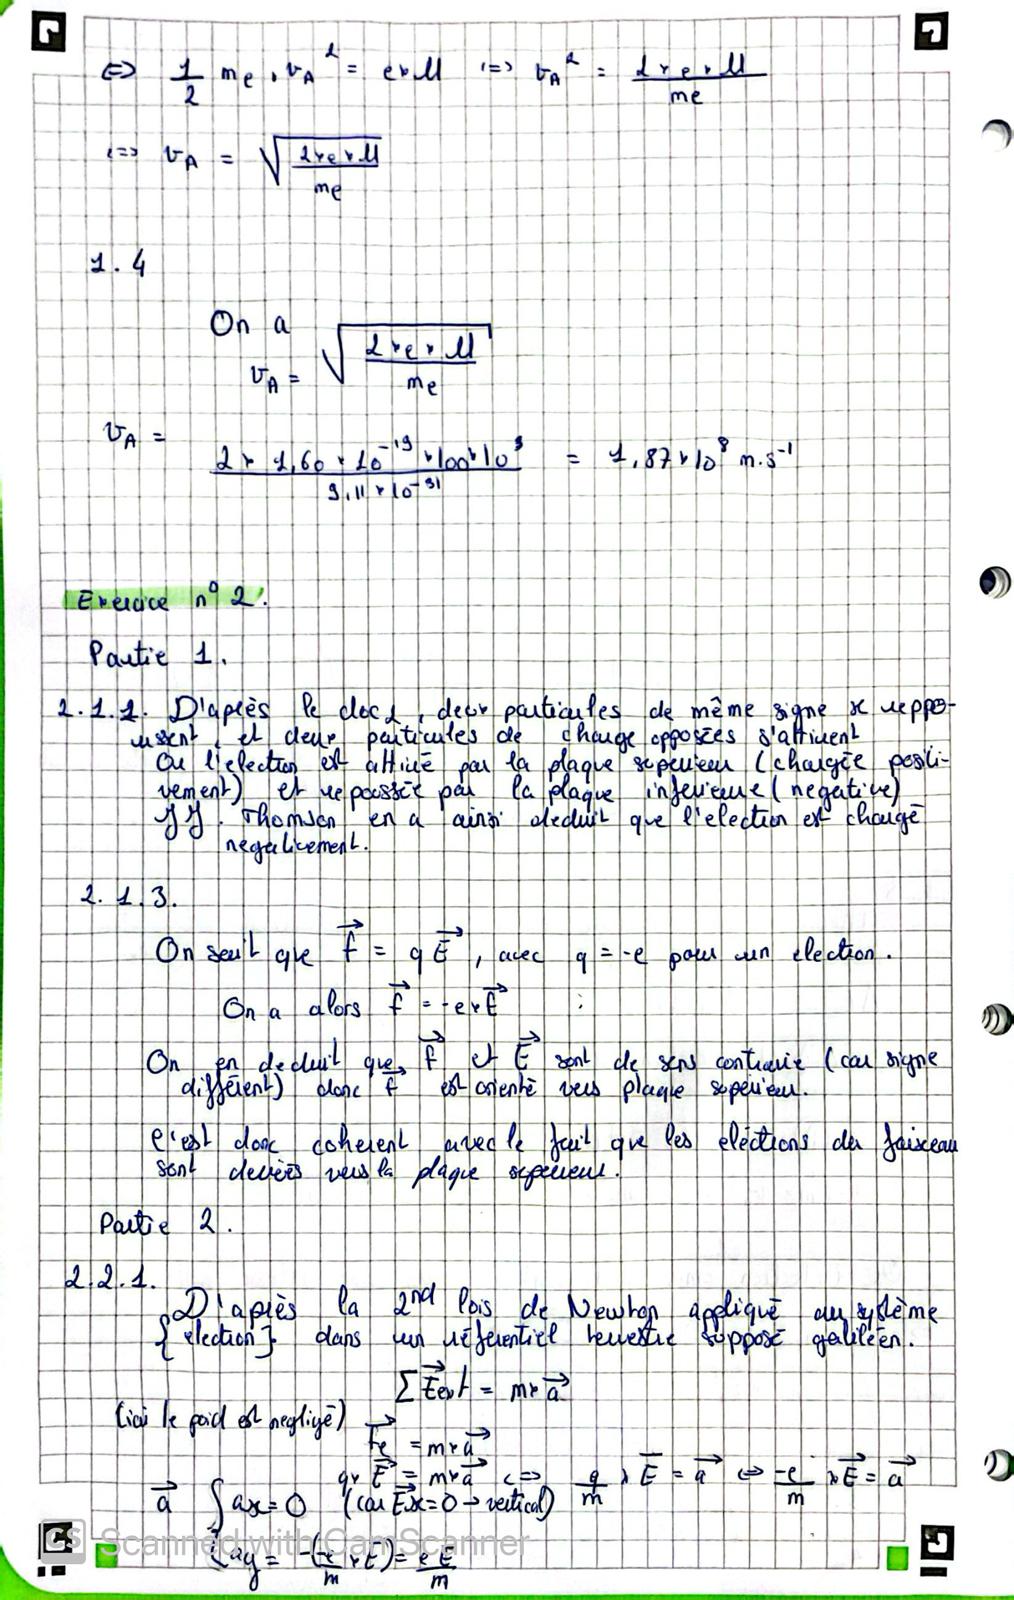 ⇔ 1/2 me × vA² = e × U ⇔ vA² = 2 × e × U / me
⇔ vA = √(2 × e × U / me)
1.4
On a
vA = √(2 × e × U / me)
vA = 2 × 1,60 × 10⁻¹⁹ × 100 × 10³ / 9,11 × 10⁻³¹ = 1,87 × 10⁸ m.s⁻¹
Exercice n° 2.
Partie 1.
2.1.1. D'après le doc 1, deux particules de même signe se reppo-
ussent, et deux particules de charge opposées s'attirent
Or l'electron est attiré par la plaque superieur (chargée positi-
vement) et repoussée par la plaque inferieure (negative)
JJ. Thomson en a ainsi deduit que l'electron est chargé
negativement.
2.1.3.
On sait que f⃗ = qE⃗, avec q = -e pour un electron.
On a alors f⃗ = -e × E⃗
On en deduit que f⃗ et E⃗ sont de sens contraire (car signe
différent) donc f⃗ est orienté vers plaque supérieur.
C'est donc coherent avec le fait que les eléctrons du faisceau
sont deviées vers la plaque superieur.
Partie 2.
2.2.1.
D'après la 2nd lois de Newton appliqué au système
{electron} dans un référentiel terrestre supposé galiléen.
∑F⃗ext = m × a⃗
(ici le poid est negligé)
F⃗e = m × a⃗
q × E⃗ = m × a⃗ ⇔ q/m × E⃗ = a⃗ ⇔ -e/m × E⃗ = a⃗
a⃗ { ax = 0 (car E⃗x = 0 → vertical)
{ ay = -(-e/m × E) = eE/m
CS Scanned with CamScanner